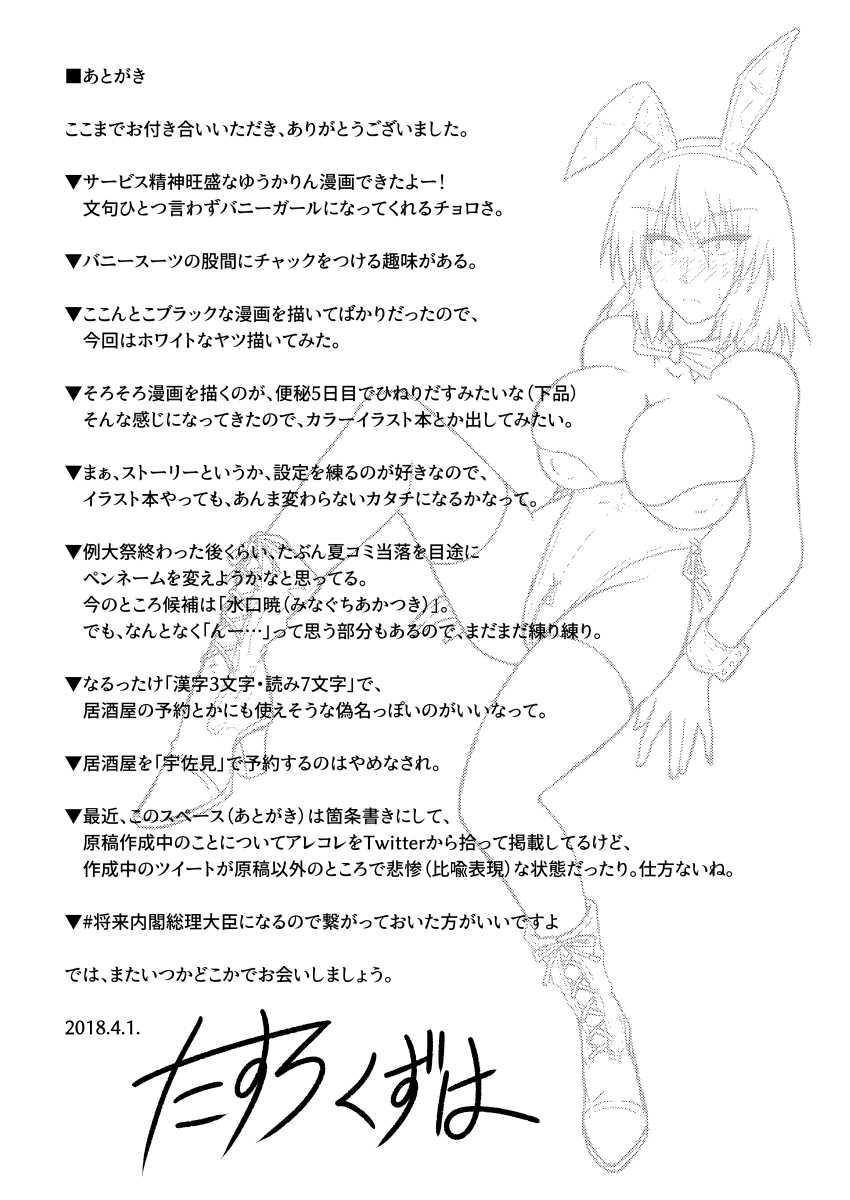 ■あとがき
ここまでお付き合いいただき、ありがとうございました。
▼サービス精神旺盛なゆうかりん漫画できたよー！
文句ひとつ言わずバニーガールになってくれるチョロさ。
▼バニースーツの股間にチャックをつける趣味がある。
▼ここんとこブラックな漫画を描いてばかりだったので、
今回はホワイトなヤツ描いてみた。
▼そろそろ漫画を描くのが、便秘5日目でひねりだすみたいな（下品）
そんな感じになってきたので、カラーイラスト本とか出してみたい。
▼まぁ、ストーリーというか、設定を練るのが好きなので、
イラスト本やっても、あんま変わらないカタチになるかなって。
▼例大祭終わった後くらい、たぶん夏コミ当落を目途に
ペンネームを変えようかなと思ってる。
今のところ候補は「水口暁（みなぐちあかつき）」。
でも、なんとなく「んー…」って思う部分もあるので、まだまだ練り練り。
▼なるったけ「漢字3文字・読み7文字」で、
居酒屋の予約とかにも使えそうな偽名っぽいのがいいなって。
▼居酒屋を「宇佐見」で予約するのはやめなされ。
▼最近、このスペース（あとがき）は箇条書きにして、
原稿作成中のことについてアレコレをTwitterから拾って掲載してるけど、
作成中のツイートが原稿以外のところで悲惨（比喩表現）な状態だったり。仕方ないね。
▼#将来内閣総理大臣になるので繋がっておいた方がいいですよ
では、またいつかどこかでお会いしましょう。
2018.4.1.
たすろくずは